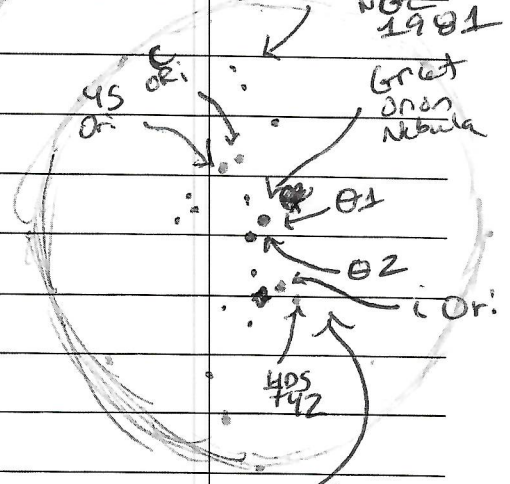 NGC
1981
c
Ori
45
Ori
Great
Orion
Nebula
θ1
θ2
i Ori
HDS
742